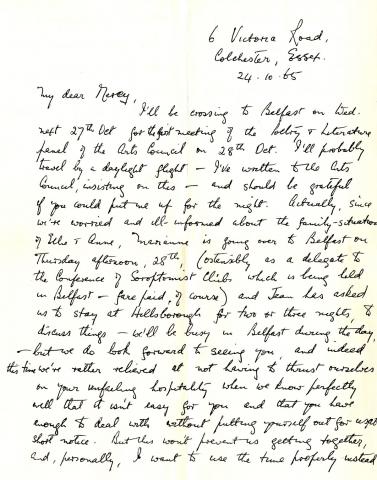 6 Victoria Road,
Colchester, Essex.
24.10.65
My dear Mercy,
I'll be crossing to Belfast on Wed.
next 27th Oct for the first meeting of the Poetry & Literature
panel of the Arts Council on 28th Oct. I'll probably
travel by a daylight flight – I've written to the Arts
Council, insisting on this – and should be grateful
if you could put me up for the night. Actually, since
we're worried and ill-informed about the family-situation
of Elke & Anne, Marianne is going over to Belfast on
Thursday afternoon, 28th (ostensibly as a delegate to
the Conference of Soroptomist Clubs which is being held
in Belfast – fare paid, of course) and Jean has asked
us to stay at Hillsborough for two or three nights, to
discuss things – we'll be busy in Belfast during the day,
– but we do look forward to seeing you, and indeed
this time we're rather relieved at not having to thrust ourselves
on your unfailing hospitality when we know perfectly
well that it isn't easy for you and that you have
enough to deal with without putting yourself out for us at
short notice. But this won't prevent us getting together,
and, personally, I want to use the time properly instead